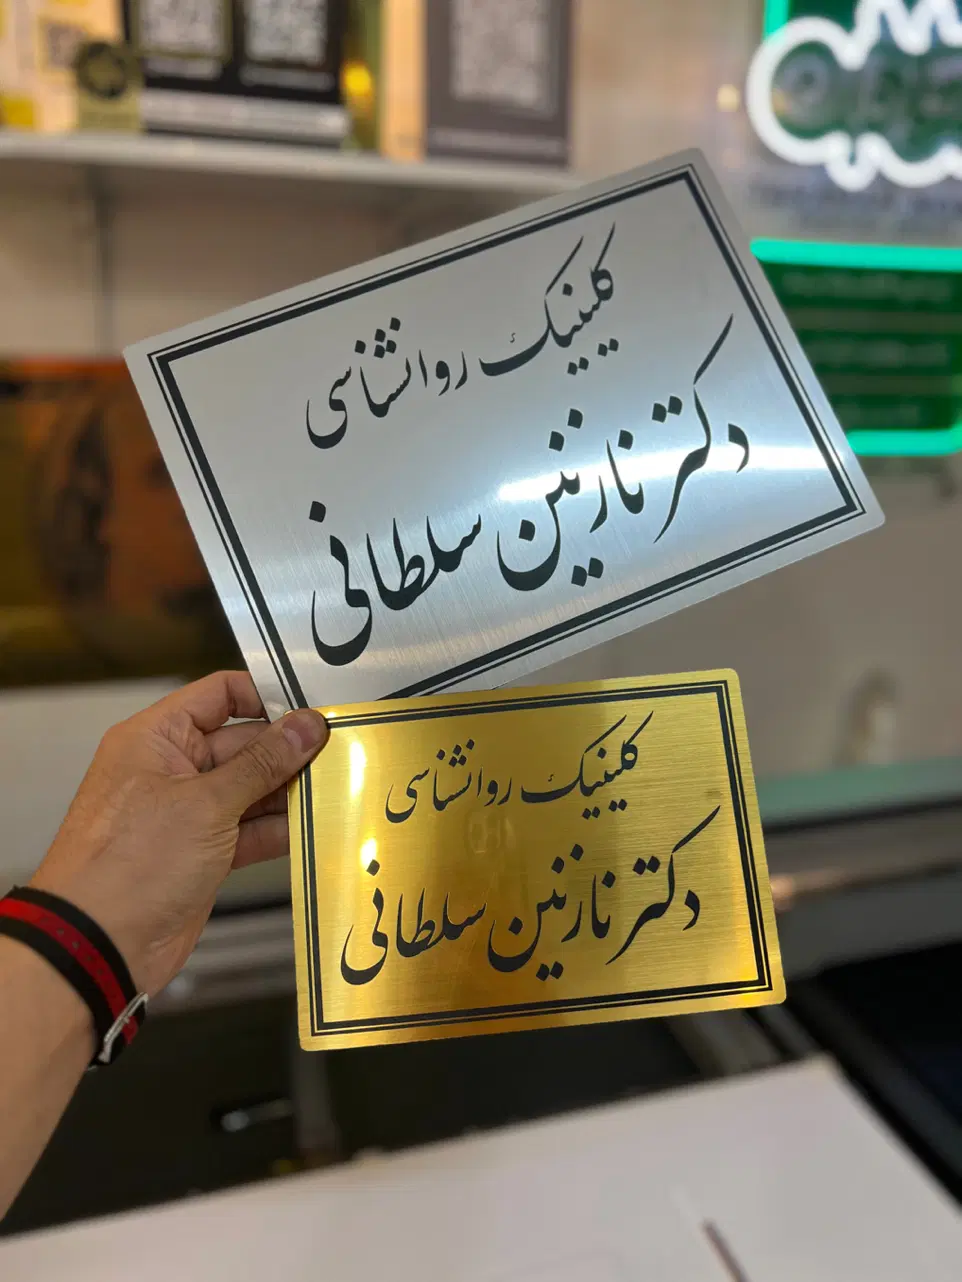 کلینیک روانشناسی
دکتر نازنین سلطانی
کلینیک روانشناسی
دکتر نازنین سلطانی